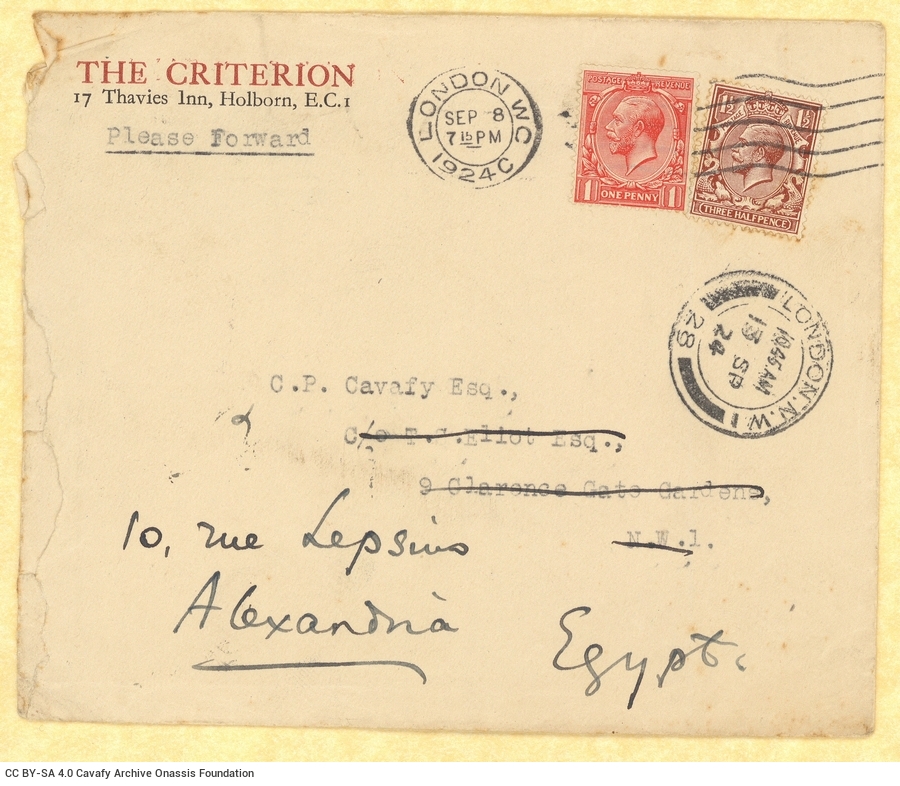 THE CRITERION
17 Thavies Inn, Holborn, E.C.1
Please Forward
LONDON W.C
SEP 8
7 15 PM
1924 C
POSTAGE REVENUE
1 ONE PENNY 1
1½ 1½
THREE HALFPENCE
LONDON.N.W.1
10.45 AM
13 SP
24
28
C.P. Cavafy Esq.,
C/o T.S.Eliot Esq.,
9 Clarence Gate Gardens,
N.W.1.
10, rue Lepsius
Alexandria
Egypt.
CC BY-SA 4.0 Cavafy Archive Onassis Foundation